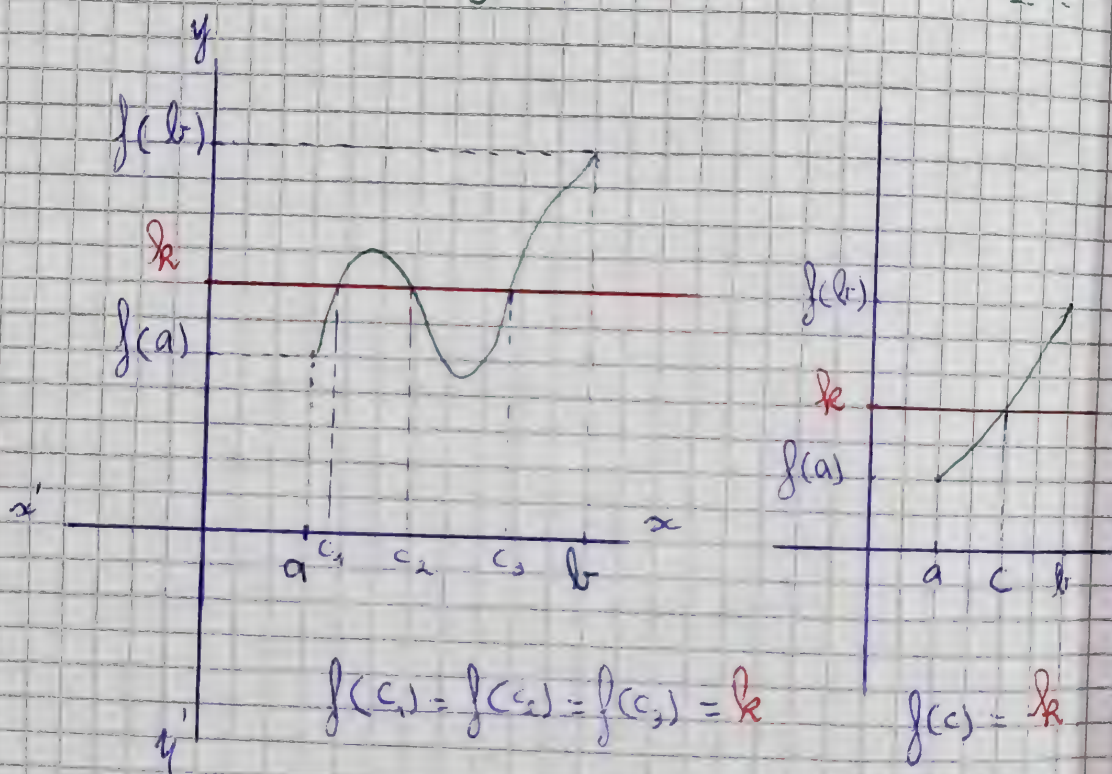 y
f(b)
k
f(a)
x'
x
a c₁ c₂ c₃ b
y'
f(c₁) = f(c₂) = f(c₃) = k
f(b)
k
f(a)
a c b
f(c) = k